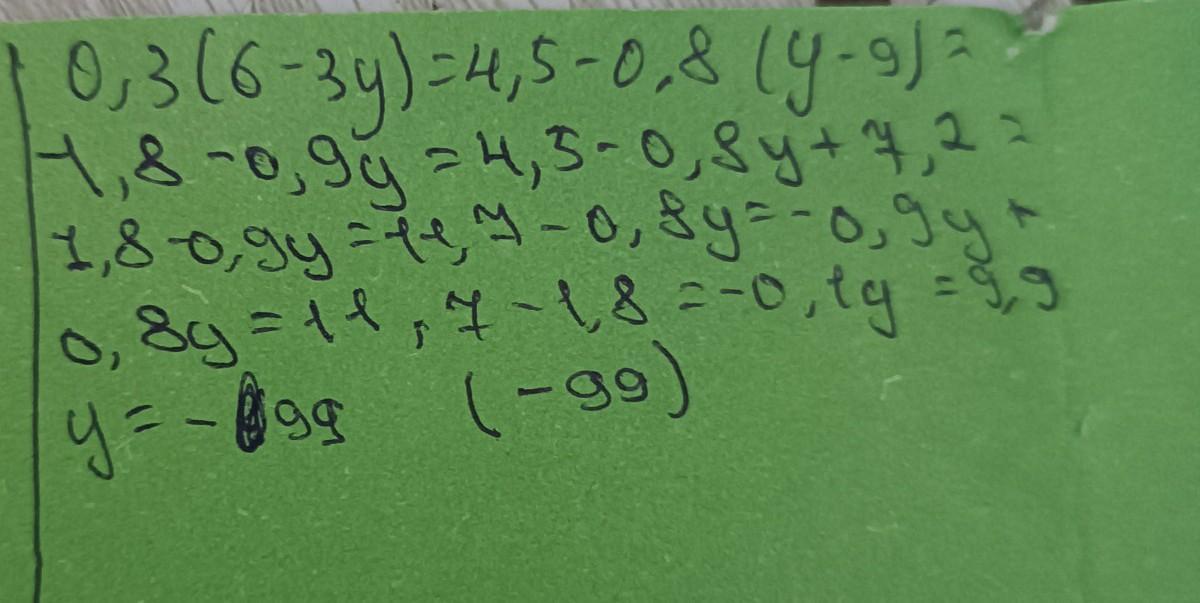 0,3(6-3y)=4,5-0,8(y-9)=
1,8-0,9y=4,5-0,8y+7,2=
1,8-0,9y=11,7-0,8y=-0,9y+
0,8y=11,7-1,8=-0,1y=9,9
y=-99 (-99)